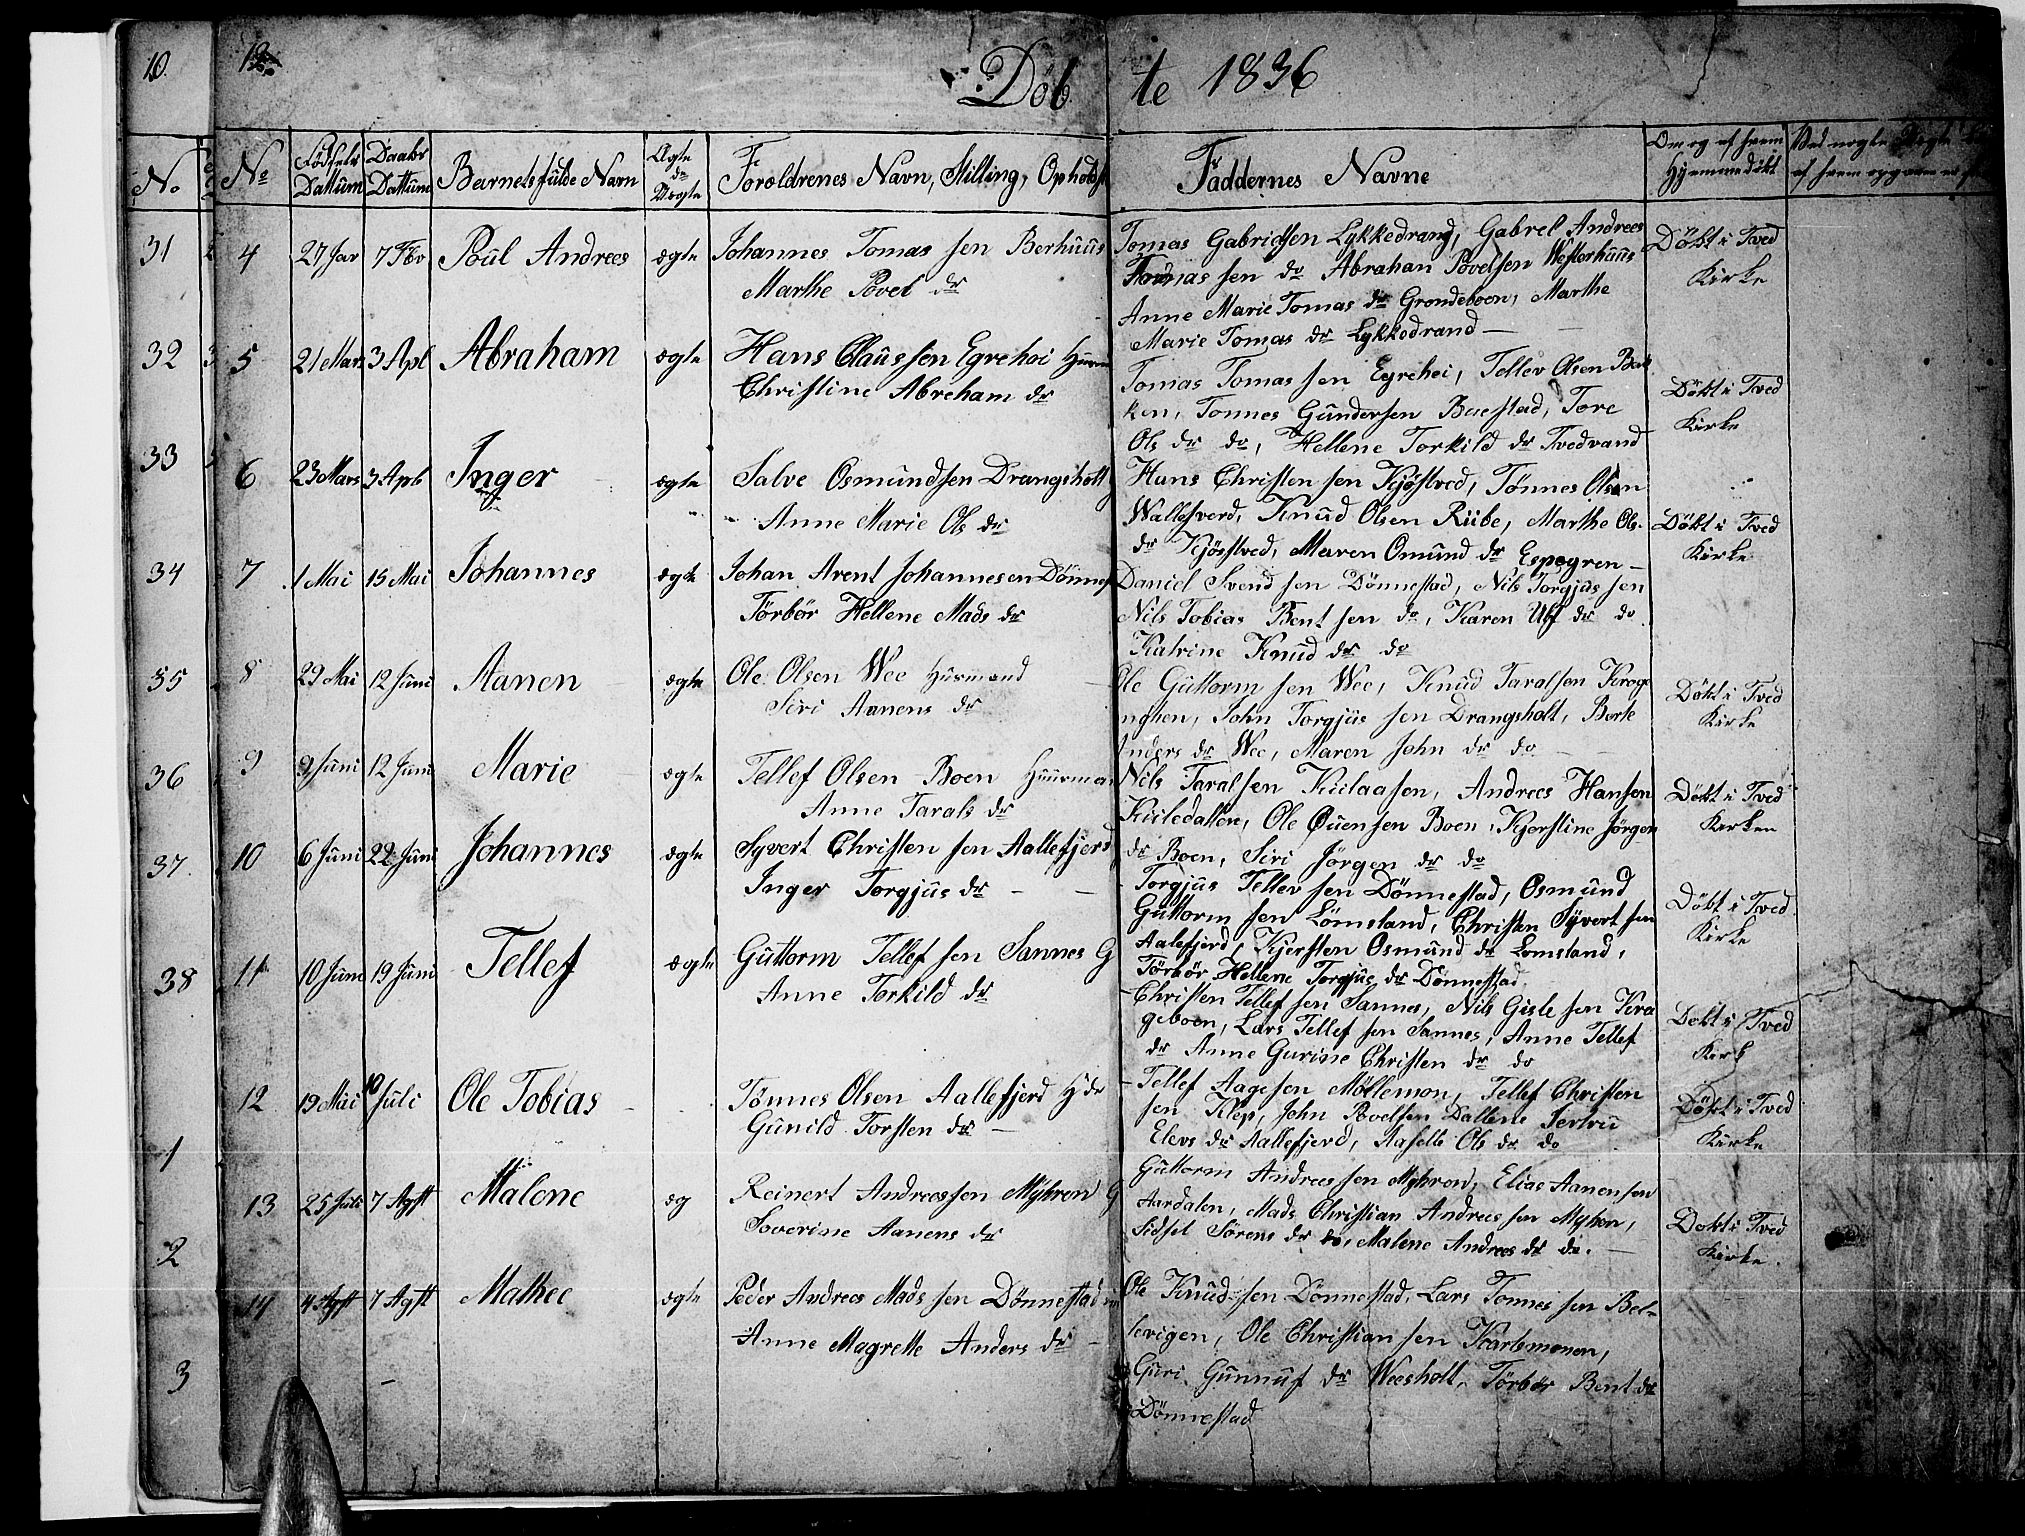 10. 12
Döb te 1836
No No Fødsels Dattum Daabs Dattum Barnets fulde Navn Ægte Uægte Foreldrenes Navn, Stilling, Opholds Faddernes Navne Om og af hvem Hjemmedøbt
31 4 27 Jar 7 Feb Poul Andrees ægte Johannes Tomas sen Berhuus
Marthe Povel dr
Tomas Gabrielsen Lykkedrang, Gabrel Andrees
Tomas sen do Abrahan Povelsen Westerhuus
Anne Marie Tomas dr Grondeboen, Marthe
Marie Tomas dr Lykkedrand —
Döbt i Tved
Kirke
32 5 21 Mars 3 Apl Abraham ægte Hans Claussen Egrehei
Christine Abreham dr
Tomas Tomas sen Egrehei, Tellev Olsen Bak
ken, Tonnes Gundersen Boestad, Tore
Ols dr do, Hellene Torkild dr Tvedvand
Döbt i Tved
Kirke
33 6 23 Mars 3 Apl Inger ægte Salve Osmundsen Drangsholt
Anne Marie Ols dr
Hans Christen sen Kjöstved, Tönnes Olsen
Wallesverd, Knud Olsen Ribe, Marthe Ols
dr Kjöstved, Maren Omund dr Espegren —
Döbt i Tved
Kirke
34 7 1 Mai 15 Mai Johannes ægte Johan Arent Johannesen Dönnes
Törbör Hellene Mads dr
Daniel Svend sen Dönnestad, Nils Torgjus sen
Nils Tobias Bent sen do, Karen Ulf dr do
Katrine Knud dr do
35 8 29 Mai 12 Juni Aanen ægte Ole Olsen Wee Husmand
Siri Aanens dr
Ole Guttorm sen Wee, Knud Taralsen Kroge
nghen, John Torgjus sen Drangsholt, Berte
Anders dr Wee, Maren John dr do
Döbt i Tved
Kirke
36 9 9 Juni 12 Juni Marie ægte Tellef Olsen Boen Huusman
Anne Tarals dr
Nils Taralsen Kulaasen, Andrees Hansen
Kuiledallen, Ole Ouensen Boen, Kjerstine Jörgen
dr Boen, Siri Jörgen dr do
Döbt i Tved
Kirken
37. 10 6 Juni 22 Juni Johannes ægte Syvert Christen sen Aallefjerd
Inger Torgjus dr —
Torgjus Tellev sen Dönnestad, Osmund
Guttorm sen Lömsland, Christen Syvert sen
Aalefjerd, Kjersten Osmund dr Lomsland,
Törbör Hellene Torgjus dr Dönnestad
Döbt i Tved
Kirke
38 11 10 Juni 19 Juni Tellef ægte Guttorm Tellef sen Sannes G
Anne Torkild dr
Christen Tellef sen Sannes, Nils Gisle sen Kra
geboen, Lars Tellef sen Sannes, Anne Tellef
dr Anne Gurine Christen dr do
Debt i Tved
Kirk
12 19 Mai 10 Juli Ole Tobias Tonnes Olsen Aallefjerd
Gunild Torsten dr —
Tellef Aagesen Möllemon, Tellef Christen
sen Klep, John Povelsen Dallene Jertru
Elevs dr Aallefjerd, Aaselle Ols dr do
Döbt i Tved
Kirke
1 13 25 Juli 7 Agst Malene æg Reinert Andreessen Myhren G
Soverine Aanens dr
Guttorm Andrees sen Myhren, Elias Aanensen
Aardalen, Mads Christian Andrees sen Myhen,
Sidsel Sörens dr do, Malene Andrees dr do.
Dobt i Tved
Kirke.
2 14 4 Agst 7 Agst Mathee ægte Peder Andrees Mads sen Dönnestad
Anne Magrette Anders dr
Ole Knud sen Dönnestad, Lars Tonnes sen Bel-
levigen, Ole Christian sen Karlsmonen,
3 Guri Gunnuf dr Weesholt, Törbör Bent dr
Dönnestad